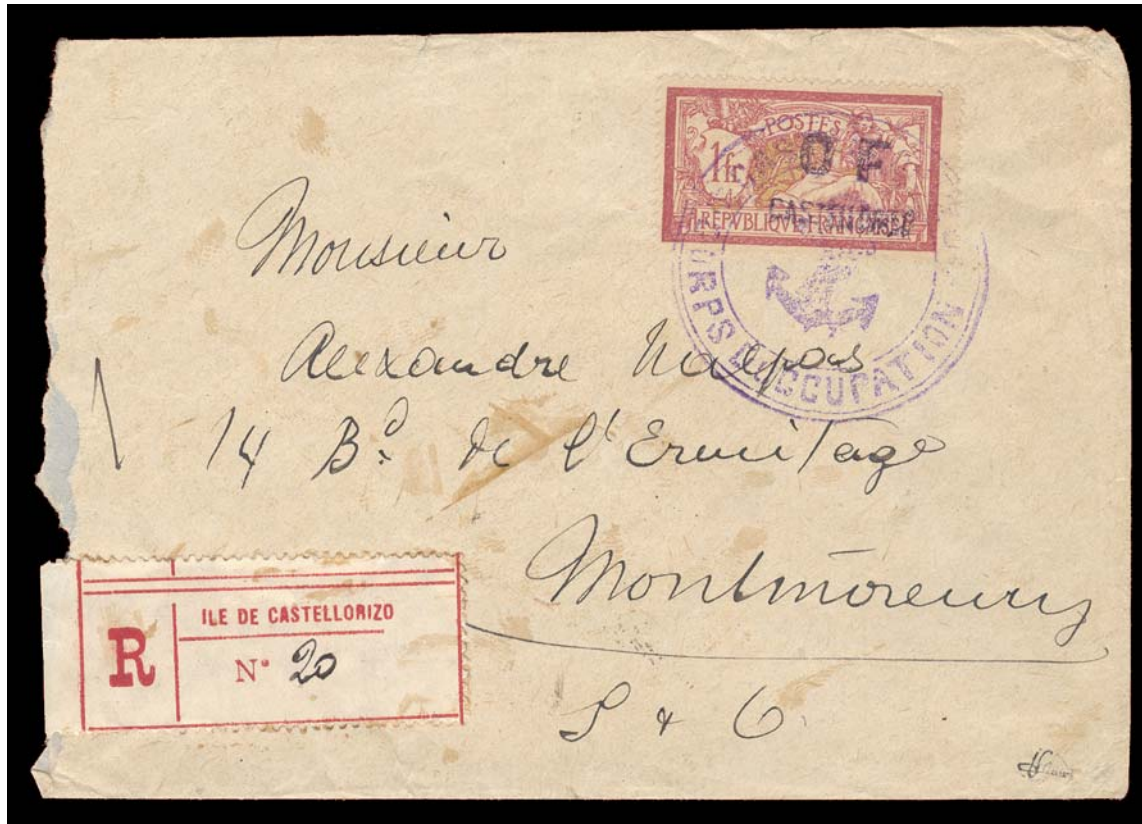 POSTES
1fr
O F
CASTELLORIZO
REPVBLIQVE FRANÇAISE
CORPS D'OCCUPATION
Monsieur
Alexandre Nalpas
14 Bd de l'Ermitage
Montmorency
S & O.
R
ILE DE CASTELLORIZO
N° 20